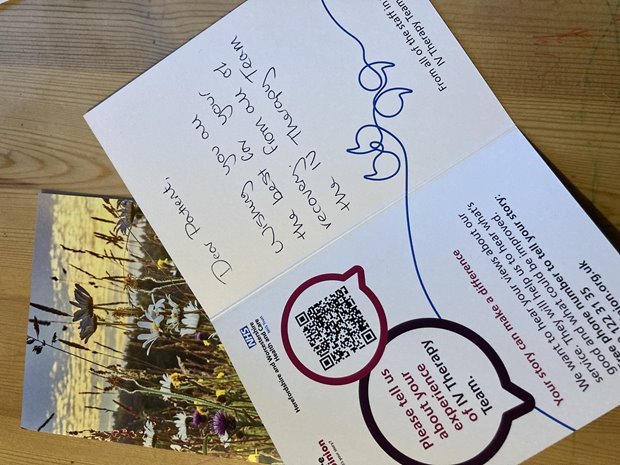 Dear Patient,
Wishing you all
the best for your
recovery. From all at
the IV Therapy Team
From all of the staff in
IV Therapy Team
NHS
Herefordshire and Worcestershire
Health and Care
NHS Trust
Please tell us
about your
experience
of IV Therapy
Team.
Your story can make a difference
We want to hear your views about our
service. They will help us to hear what's
good and what could be improved.
phone number to tell your story:
122 31 35
inion.org.uk